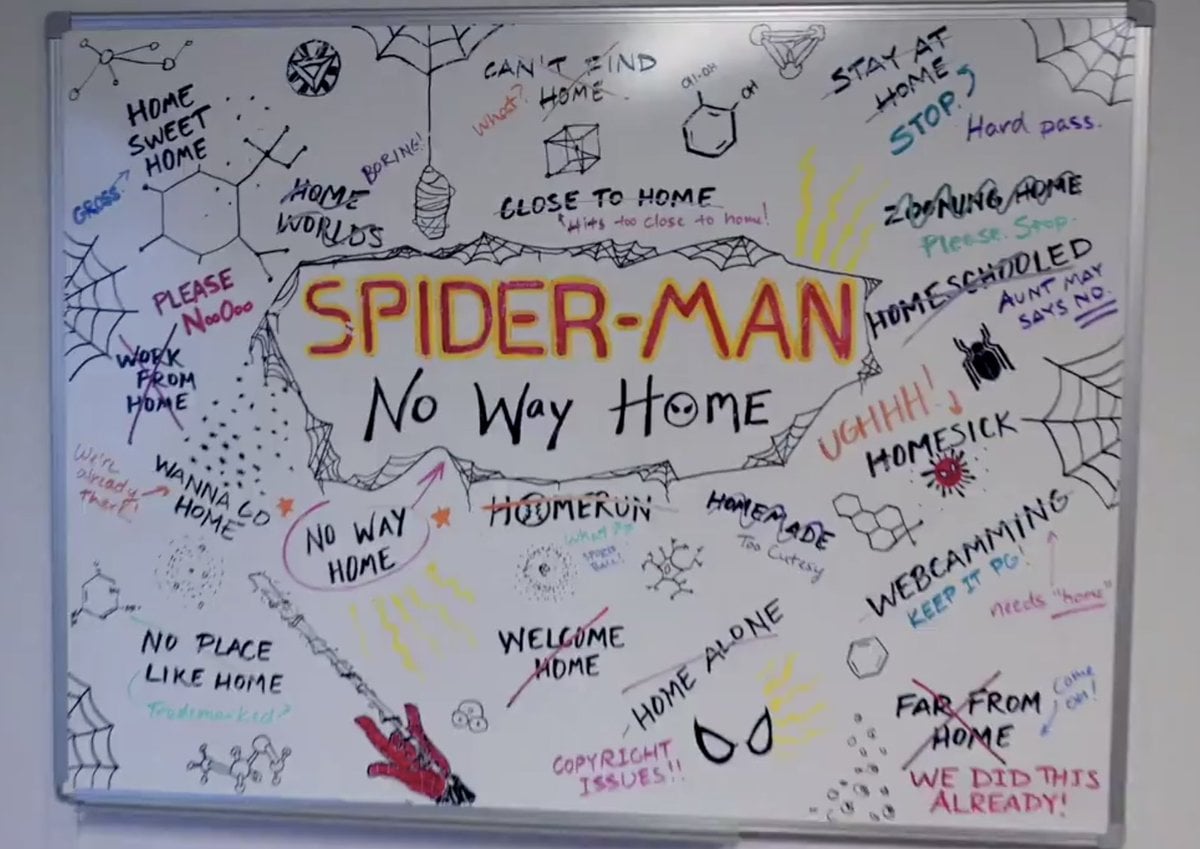 HOME
SWEET
HOME
GROSS
HOME
WORLDS
BORING!
CAN'T FIND
HOME
What?
OH
CLOSE TO HOME
Hits too close to home!
STAY AT
HOME
STOP.
Hard pass.
ZOOMING HOME
Please. Stop.
HOMESCHOOLED
AUNT MAY
SAYS NO.
PLEASE
NooOoo
WORK
FROM
HOME
SPIDER-MAN
No Way Home
UGHHH!
HOMESICK
We're
already
there!
WANNA GO
HOME
NO WAY
HOME
HOMERUN
What is
HOMEMADE
Too Cutesy
WEBCAMMING
KEEP IT PG!
needs "home"
NO PLACE
LIKE HOME
Trademarked?
WELCOME
HOME
HOME ALONE
COPYRIGHT
ISSUES!!
FAR FROM
HOME
Come
on!
WE DID THIS
ALREADY!